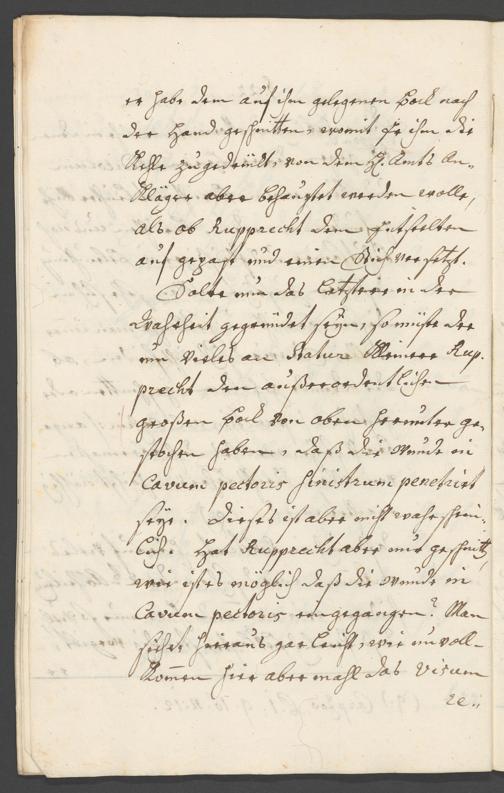 er habe dem auf ihm gelegenen Bock nach
der Hand geschnitten, womit Er ihm die
Kehle zugedrückt, von dem H. Amts An-
kläger aber behauptet werden wolle,
als ob Rupprecht dem Entseelten
auf gepast und einen Stich versetzt.
Solte nun das Letztere in der
Wahrheit gegründet seyn, so müste der
um vieles an Statur kleinere Rup-
precht den außerordentlichen
großen Bock von oben herunter ge-
stochen haben, daß die Wunde in
Cavum pectoris sinistrum penetrirt
seye. Dieses ist aber nicht wahrschein-
lich. Hat Rupprecht aber nur geschnitt,
wie ist es möglich daß die Wunde in
Cavum pectoris eingegangen? Man
siehet hieraus gar leicht, wie unvoll-
kommen hier abermahl das Visum
re..